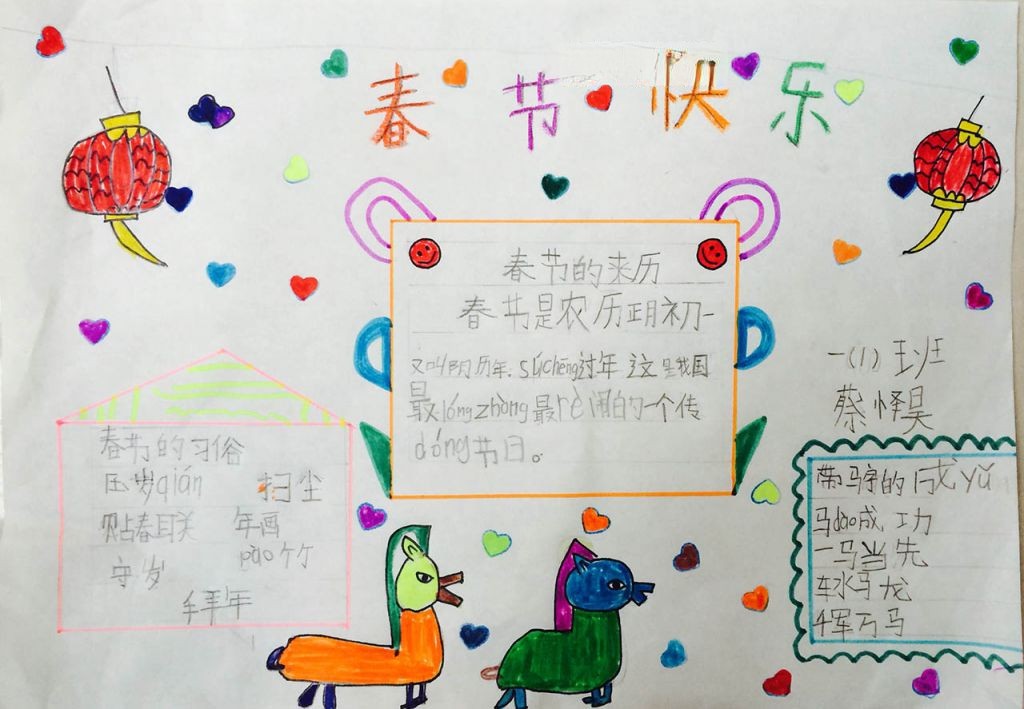 春节快乐
春节的来历
春节是农历正月初一
又叫阴历年.súchēng过年 这是我国
最lóngzhòng最rè闹的一个传
dóng节日。
一(1)班
蔡怿昊
春节的习俗
压岁qián 扫尘
贴春联 年画
pào竹
守岁
拜年
带马字的成yǔ
马dao成功
一马当先
车水马龙
千军万马